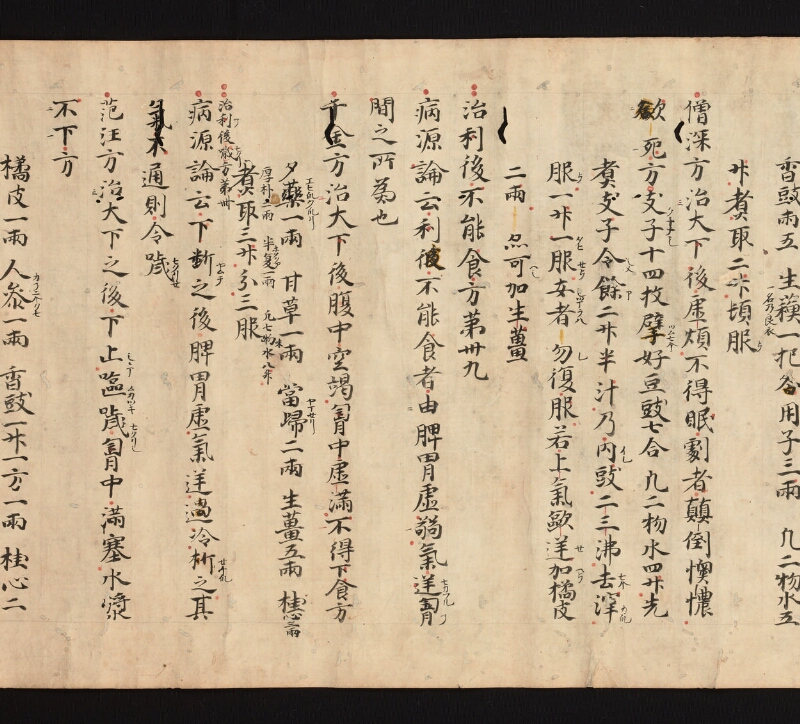 香豉兩五 生蘓一把 用子三兩 凡二物水五
升煑取二升頓服
僧深方治大下後虛煩不得眠劇者顛倒懊憹
欲死方 支子十四枚擘 好豆豉七合 凡二物水四升先
煑支子令餘二升半汁乃內豉二三沸去滓
服一升一服安者勿復服若上氣歐逆加橘皮
二兩 亦可加生薑
治利後不能食方第卅九
病源論云利後不能食者由脾胃虛弱氣逆胃
間之所為也
千金方治大下後腹中空竭胃中虛滿不得下食方
夕藥一兩 甘草一兩 當歸二兩 生薑五兩 桂心三兩
厚朴二兩 半夏二兩 凡七物水八升
煑取三升分三服
治利後噦方第卌
病源論云下斷之後脾胃虛氣逆遇冷折之其
氣不通則令噦
范汪方治大下之後下止嘔噦胃中滿塞水漿
不下方
橘皮一兩 人參一兩 香豉一升一方一兩 桂心二